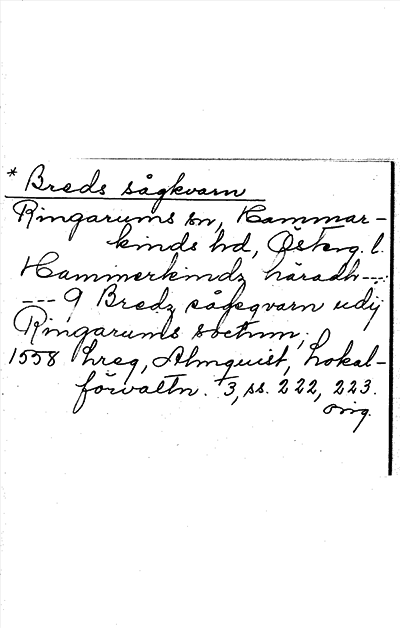 * Breds sågkvarn
Ringarums sn, Hammar-
kinds hd, Österg. l.
Hammerkindz häradh---:
--- 9 Bredz sågeqvarn udij
Ringarums sochnn;
1558 hreg, Almquist, Lokal-
förvaltn. 3, ss. 222, 223.
orig.